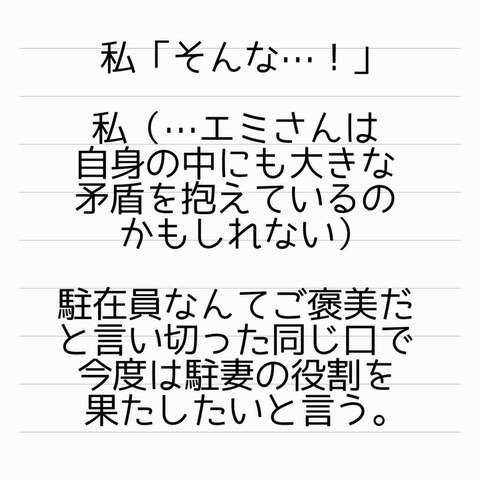 私「そんな…！」
私（…エミさんは
自身の中にも大きな
矛盾を抱えているの
かもしれない）
駐在員なんてご褒美だ
と言い切った同じ口で
今度は駐妻の役割を
果たしたいと言う。